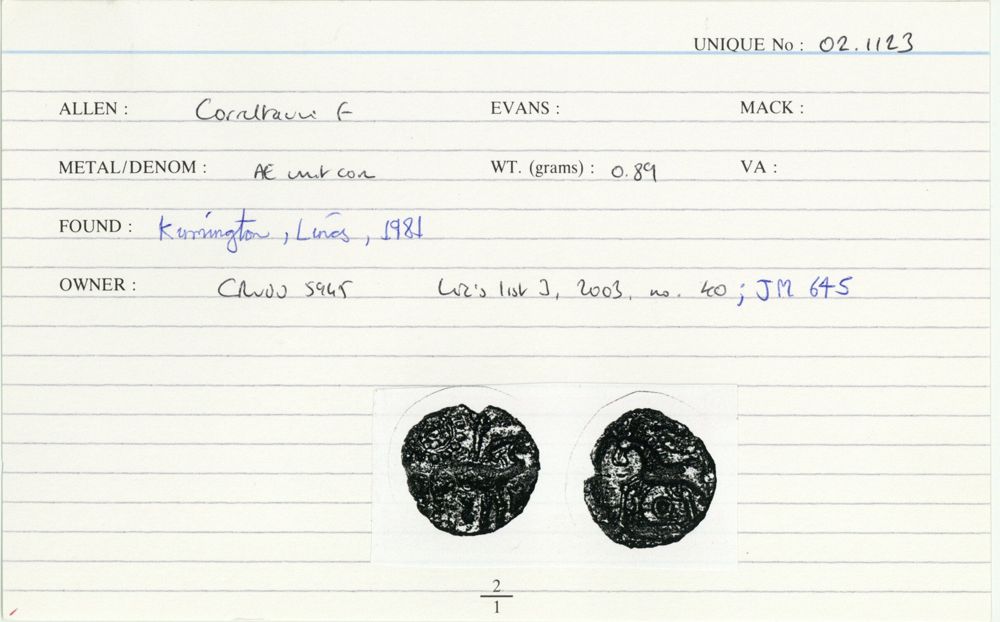 UNIQUE No : 02.1123
ALLEN : Corieltauvi F EVANS : MACK :
METAL/DENOM : AE unit core WT. (grams) : 0.89 VA :
FOUND : Kirmington, Lincs, 1981
OWNER : list 3, 2003, no. 40 ; JM 645
2
1